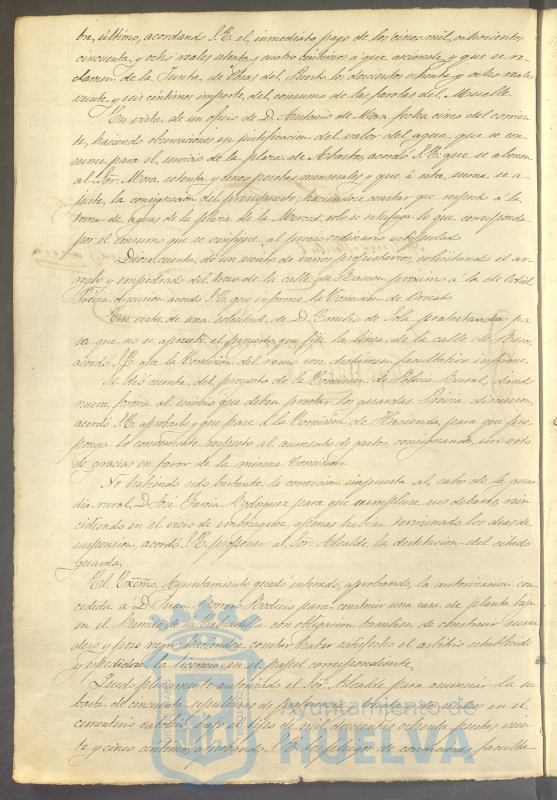 bre, último, acordando S.E. el inmediato pago de los cinco mil, ochocientos
cincuenta y ocho reales setenta y cuatro céntimos á que asciende y que se re-
clamen de la Junta de Obras del Puerto los doscientos ochenta y ocho reales
veinte y seis céntimos importe del consumo de las farolas del Muelle.
En vista de un oficio de D. Antonio de Mora fecha cinco del corrien-
te, haciendo observaciones en justificacion del valor del agua que se con-
sume para el servicio de la plaza de Abastos, acordó S.E. que se abonen
al Sor. Mora setenta y cinco pesetas mensuales y que á esta suma se a-
juste la consignacion del presupuesto; haciéndose constar que respecto á la
toma de aguas de la plaza de la Merced solo se satisfaga lo que corresponda
por el consumo que se verifique al precio ordinario estipulado.
Dióse cuenta de un escrito de varios propietarios, solicitando el ar-
reglo y empedrado del trozo de la calle de Rascon próximo á la de
Prévia discusion acordó S.E. que informe la Comision de Ornato.
En vista de una solicitud de D. Emilio de Sola protestando pa-
ra que no se apruebe el proyecto que fija la línea de la calle de
acordó S.E. que la Comision del ramo con dictamen facultativo informe.
Se dió cuenta del proyecto de la Comision de Policía Rural, dando
nueva forma al servicio que deben prestar los guardas. Prévia discusion,
acordó S.E. aprobarlo y que pase á la Comision de Hacienda, para que pro-
ponga lo conveniente respecto al aumento de gastos, consignando, un voto
de gracias en favor de la misma Comision.
No habiendo sido bastante la correccion impuesta al cabo de la guar-
dia rural, D. José Garcia Rodriguez para que cumpliese sus deberes, rein-
cidiendo en el vicio de embriaguez, apenas habian terminado los dias de
suspension, acordó S.E. proponer al Sor. Alcalde la destitucion del citado
guarda.
El Excmo. Ayuntamiento quedó enterado, aprobando, la autorizacion con-
cedida a D. Juan Borrero para construir una casa de planta baja
en el de la con obligacion tambien de construir sumi-
dero y pozo negro haciendo constar haber satisfecho el arbitrio establecido
y espidiéndose la licencia en el papel correspondiente.
Quedó plenamente autorizado el Sor. Alcalde para anunciar la su-
basta de cincuenta sepulturas de preferencia en el
cementerio católico bajo el tipo de mil, doscientas ochenta pesetas vein-
te y cinco céntimos, aprobando S.E. los pliegos de condiciones, faculta-
Ayuntamiento de
HUELVA